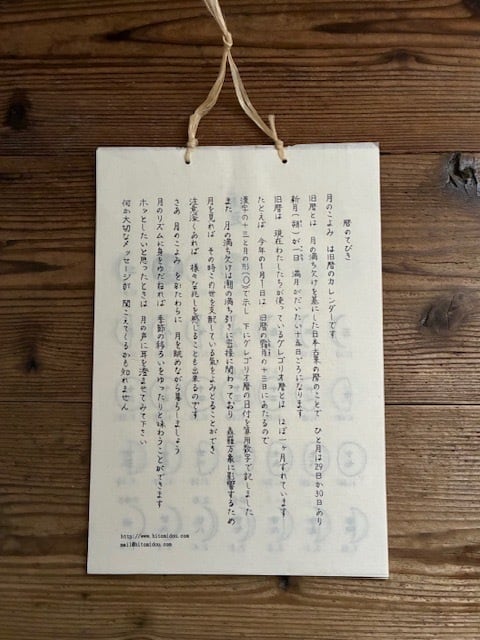 暦のてびき
月のこよみ は旧暦のカレンダーです
旧暦とは 月の満ち欠けを基にした日本古来の暦のことで ひと月は29日か30日あり
新月(朔)が一日 満月がだいたい十五日ごろになります
旧暦は 現在わたしたちが使っているグレゴリオ暦とは ほぼ一ヶ月ずれています
たとえば 今年の1月1日は 旧暦の霜月の十三日にあたるので
漢字の十三と月の形(○)で示し 下にグレゴリオ暦の日付を算用数字で記しました
また 月の満ち欠けは潮の満ち引きに密接に関わっており 森羅万象に影響するため
月を見れば その時この世を支配している気をよみとることができ
注意深くあれば 様々な兆しを感じることも出来るのです
さあ 月のこよみ をかたわらに 月を眺めながら暮らしましょう
月のリズムに身をゆだねれば 季節の移ろいをゆったりと味わうことができます
ホッとしたいと思ったときは 月の声に耳を澄ませてみて下さい
何か大切なメッセージが 聞こえてくるかも知れません
http://www.hitomidou.com
mail@hitomidou.com